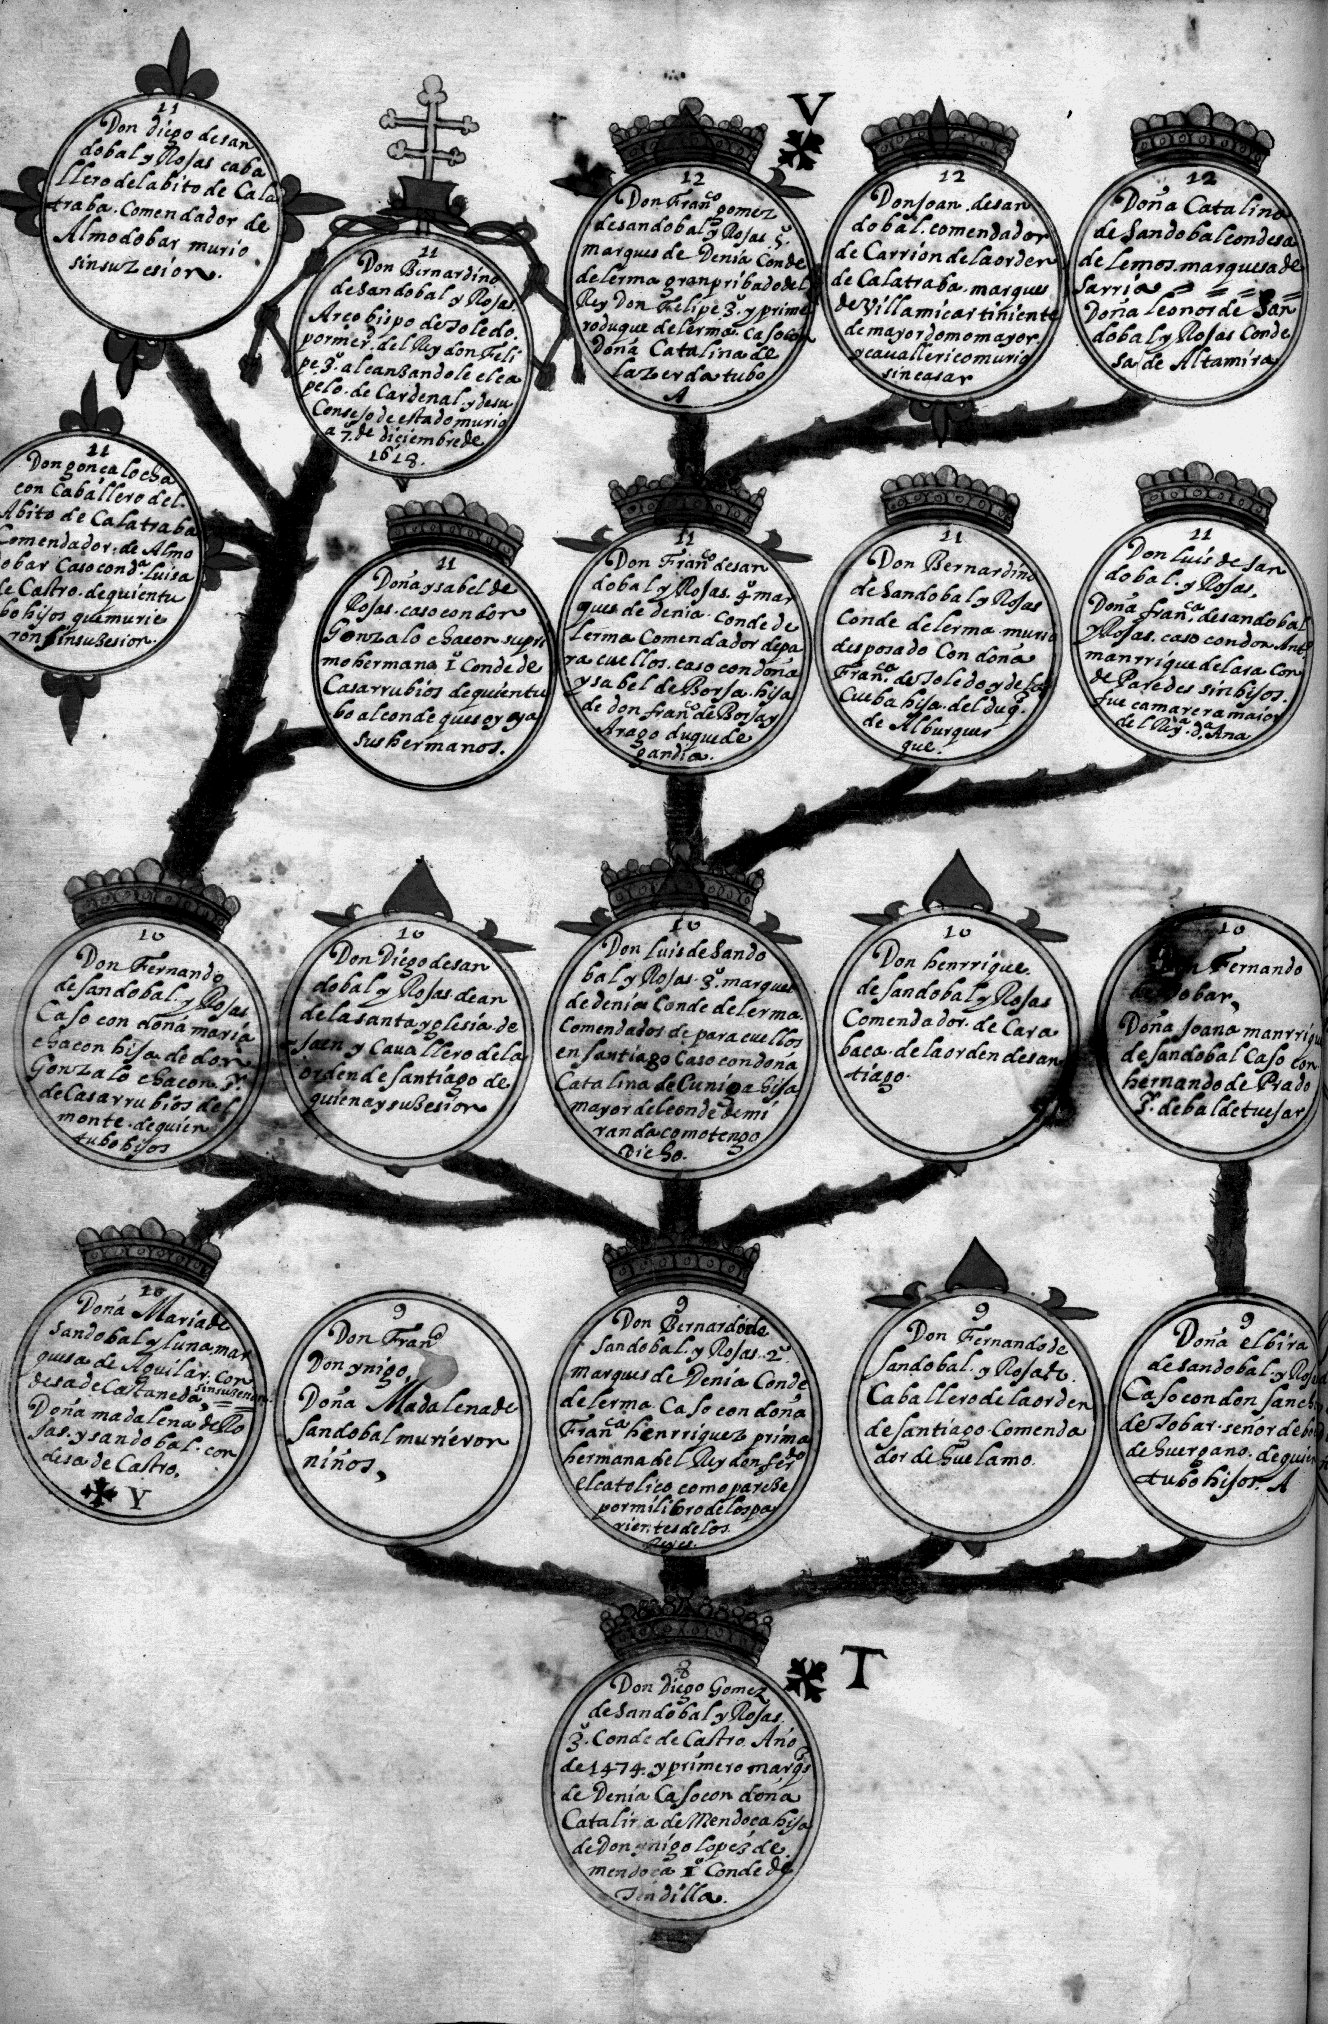 11
Don diego de san
dobal y Rojas caba
llero del abito de Cala
traba. Comendador de
Almodobar murio
sin suzesion.
11
Don Bernardino
de Sandobal y Rojas.
Arcobispo de toledo.
por mer.d del Rey don Feli
pe 3.º alcanzandole el ca
pelo. de Cardenal. y de su
Consejo de estado murio
a 7. de diciembre de
1618.
V
12
Don Fran.co gomez
de sandobal y Rojas. 5.º
marques de Denia Conde
de lerma gran pribado del
Rey Don Felipe 3.º y prime
ro duque de lerma. Caso con
Doña Catalina de
la zerda tubo
A
12
Don Joan. de san
dobal. comendador
de Carrion de la orden
de Calatraba. marques
de Villamiçar tiniente
de mayordomo mayor
y cavallerico murio
sin casar
12
Doña Catalina
de Sandobal condesa
de lemos. marquesa de
Sarria
Doña leonor de San
dobal y Rojas Conde
sa de Altamira
11
Don gonçalo cha
con Caballero del
Abito de Calatraba
Comendador. de Almo
dobar Caso con d.ª luisa
de Castro. de quien tu
bo hijos que murie
ron sin suzesion.
11
Doña ysabel de
Rojas. caso con don
Gonzalo chacon su pri
mo hermano 1.º Conde de
Casarrubios de quien tu
bo al conde que es oy y a
sus hermanos.
11
Don Fran.co de san
dobal y Rojas. 4.º mar
ques de denia. Conde de
lerma Comendador de pa
ra cuellos. caso con doña
ysabel de Borja. hija
de don fran.co de Borja y
Arago duque de
gandia.
11
Don Bernardino
de Sandobal y Rojas
Conde de lerma. murio
desposado Con doña
Fran.ca de Toledo y de la
Cueba hija. del duq.
de Alburquer
que.
11
Don luis de San
dobal. y Rojas,
Doña fran.ca de sandobal
y Rojas. caso con don Ant.º
manrrique de lara Con
de Paredes sin hijos.
fue camarera maior
de l Rey.ª d.ª Ana
10
Don Fernando
de sandobal. y Rojas
Caso con doña maria
chacon hija de don
Gonzalo chacon. S.r
de Casarrubios del
monte. de quien
tubo hijos
10
Don Diego de san
dobal y Rojas dean
de la santa yglesia de
Jaen y Cauallero de la
orden de santiago de
quien ay suzesion
10
Don luis de Sando
bal y Rojas. 3.º marques
de denia Conde de lerma.
Comendador de para cuellos
en santiago Caso con doña
Catalina de Cuniga hija
mayor del conde de mi
randa como tengo
Dicho.
10
Don henrrique.
de sandobal y Rojas
Comendador. de Cara
baca. de la orden de san
tiago.
10
Don Fernando
de tobar,
Doña Joana manrriq
de sandobal Caso con
hernando de Prado
S.r de baldetuejar
10
Doña Maria de
sandobal y luna, mar
quesa de Aguilar. Con
desa de Castañeda, sin suzesion.
Doña madalena de Ro
jas. y sandobal. con
desa de Castro.
Y
9
Don Fran.co
Don ynigo,
Doña Madalena de
sandobal murieron
niños,
9
Don Bernardo de
Sandobal. y Rojas. 2.º
marques de Denia Conde
de lerma. Caso con doña
Fran.ca henrriquez prima
hermana del Rey don fer.do
el catolico como pareze
por mi libro de los pa
rientes de los
Reyes.
9
Don Fernando de
sandobal. y Rojas.
Caballero de la orden
de santiago. Comenda
dor de huelamo.
9
Doña elbira
de sandobal. y Rojas
Caso con don sancho
de Tobar. señor de
de huergano. de quien
tubo hijos. A
T
8
Don diego Gomez
de Sandobal y Rojas.
3.º Conde de Castro. Año
de 1474. y primero marqs
de Denia Caso con doña
Catalina de Mendoca hija
de Don ynigo lopez de
mendoca 1.º Conde de
Tendilla.